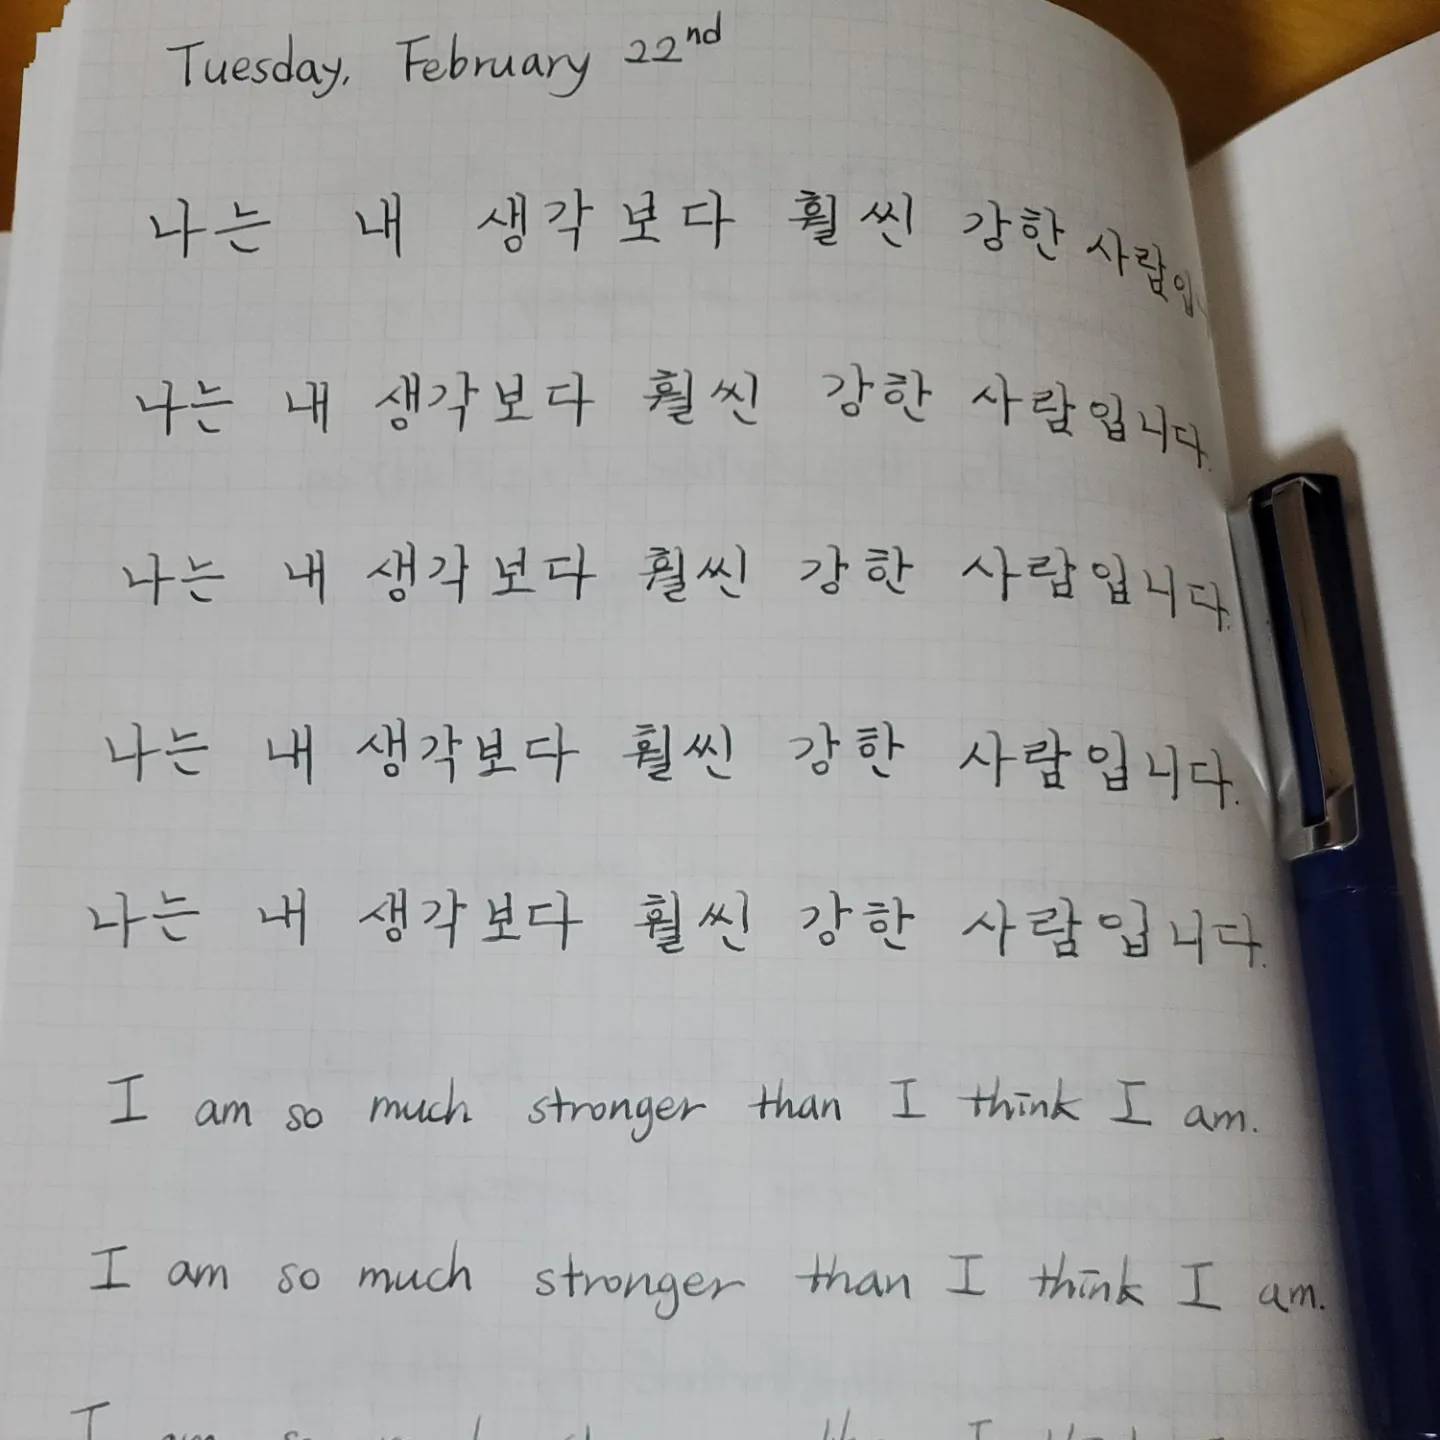 Tuesday, February 22nd
나는 내 생각보다 훨씬 강한 사람입
나는 내 생각보다 훨씬 강한 사람입니다.
나는 내 생각보다 훨씬 강한 사람입니다.
나는 내 생각보다 훨씬 강한 사람입니다.
나는 내 생각보다 훨씬 강한 사람입니다.
I am so much stronger than I think I am.
I am so much stronger than I think I am.
I am so